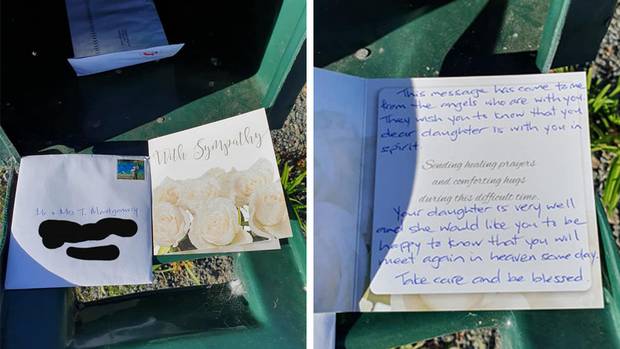 Mr & Mrs T. Montgomery
With Sympathy
This message has come to me
from the angels who are with you
They wish you to know that you
dear daughter is with you in
spirit.
Sending healing prayers
and comforting hugs
during this difficult time.
Your daughter is very well
and she would like you to be
happy to know that you will
meet again in heaven some day.
Take care and be blessed